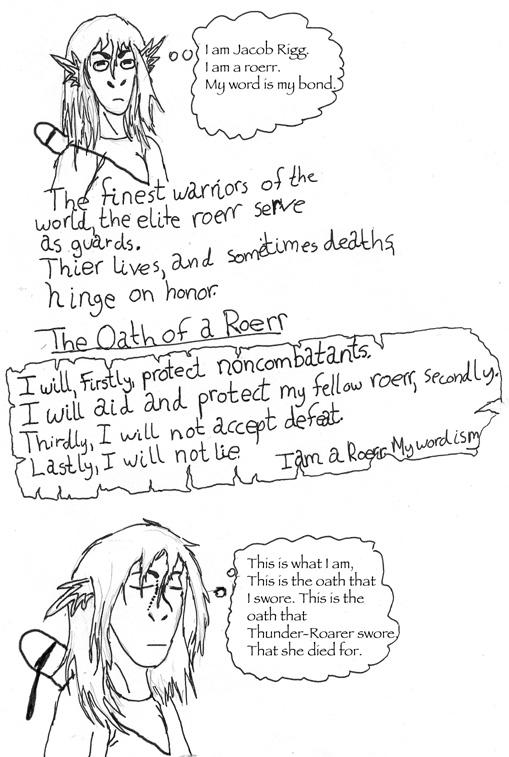 I am Jacob Rigg.
I am a roerr.
My word is my bond.
The finest warriors of the
world, the elite roerr serve
as guards.
Thier lives, and sometimes deaths,
hinge on honor.
The Oath of a Roerr
I will, Firstly, protect noncombatants.
I will aid and protect my fellow roerr, secondly.
Thirdly, I will not accept defeat.
Lastly, I will not lie
I am a Roerr. My word is m
This is what I am,
This is the oath that
I swore. This is the
oath that
Thunder-Roarer swore.
That she died for.